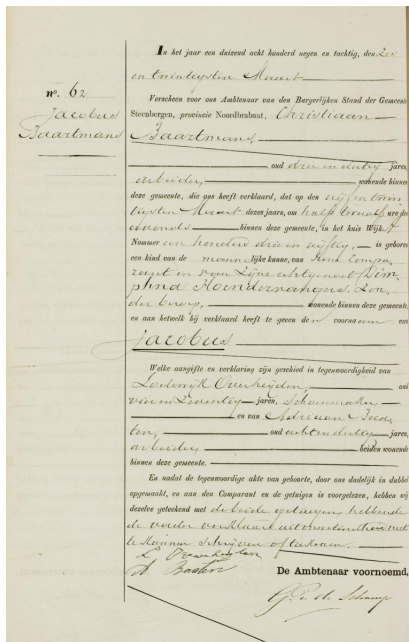 In het jaar een duizend acht honderd negen en tachtig, den zes
en twintigsten Maart
nº. 62
Jacobus
Baartmans
Verscheen voor ons Ambtenaar van den Burgerlijken Stand der Gemeente
Steenbergen, provincie Noordbrabant, Christiaan
Baartmans,
oud drie en dertig jaren,
arbeider, wonende binnen
deze gemeente, die ons heeft verklaard, dat op den vijf en twin
tigsten Maart dezes jaars, om half twaalf ure des
avonds binnen deze gemeente, in het huis Wijk A
Nommer een honderd drie en vijftig, is geboren
een kind van de mannelijke kunne, van hem Compa
rant en van zijne echtgenoot Dim
phna , zon
der beroep, wonende binnen deze gemeente,
en aan hetwelk hij verklaard heeft te geven den voornaam van
Jacobus
Welke aangifte en verklaring zijn geschied in tegenwoordigheid van
Lodewijk Overheijden, oud
vier en zeventig jaren, schoenmaker
en van Adriaan
oud acht en dertig jaren,
arbeider beiden wonende
binnen deze gemeente.
En nadat de tegenwoordige akte van geboorte, door ons dadelijk in dubbel
opgemaakt, en aan den Comparant en de getuigen is voorgelezen, hebben wij
dezelve geteekend met de beide getuigen, hebbende
de vader verklaard uit onkunde niet
te kunnen schrijven of teekenen.
De Ambtenaar voornoemd,